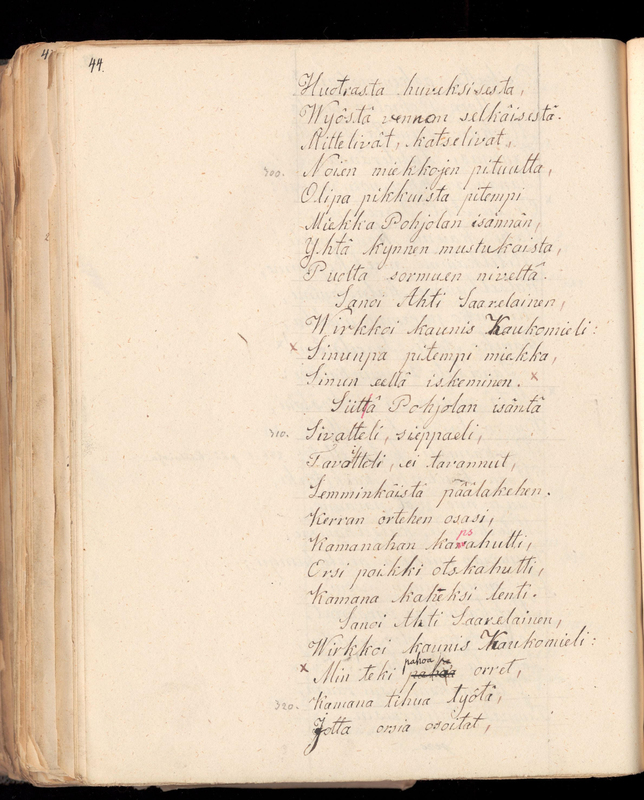 44.
Huotrasta huveksisesta,
Wyöstä vennon selkäisestä.
Mittelivät, katselivat,
300. Noien miekkojen pituutta,
Olipa pikkuista pitempi
Miekka Pohjolan isännän,
Yhtä kynnen mustukaista,
Puolta sormuen niveltä.
Sanoi Ahti Saarelainen,
Wirkkoi kaunis Kaukomieli:
x Sinunpa pitempi miekka,
Sinun eellä iskeminen. x
Siitä Pohjolan isäntä
310. Sivalteli, sieppaeli,
Tavotteli, ei tavannut,
Lemminkäistä päälakehen.
Kerran ortehen osasi,
Kamanahan kapsahutti,
Orsi poikki otskahutti,
Kamana kaheksi lenti.
Sanoi Ahti Saarelainen,
Wirkkoi kaunis Kaukomieli:
x Min teki pahoa orret,
320. Kamana tihua työtä,
Jotta orsia osoitat,